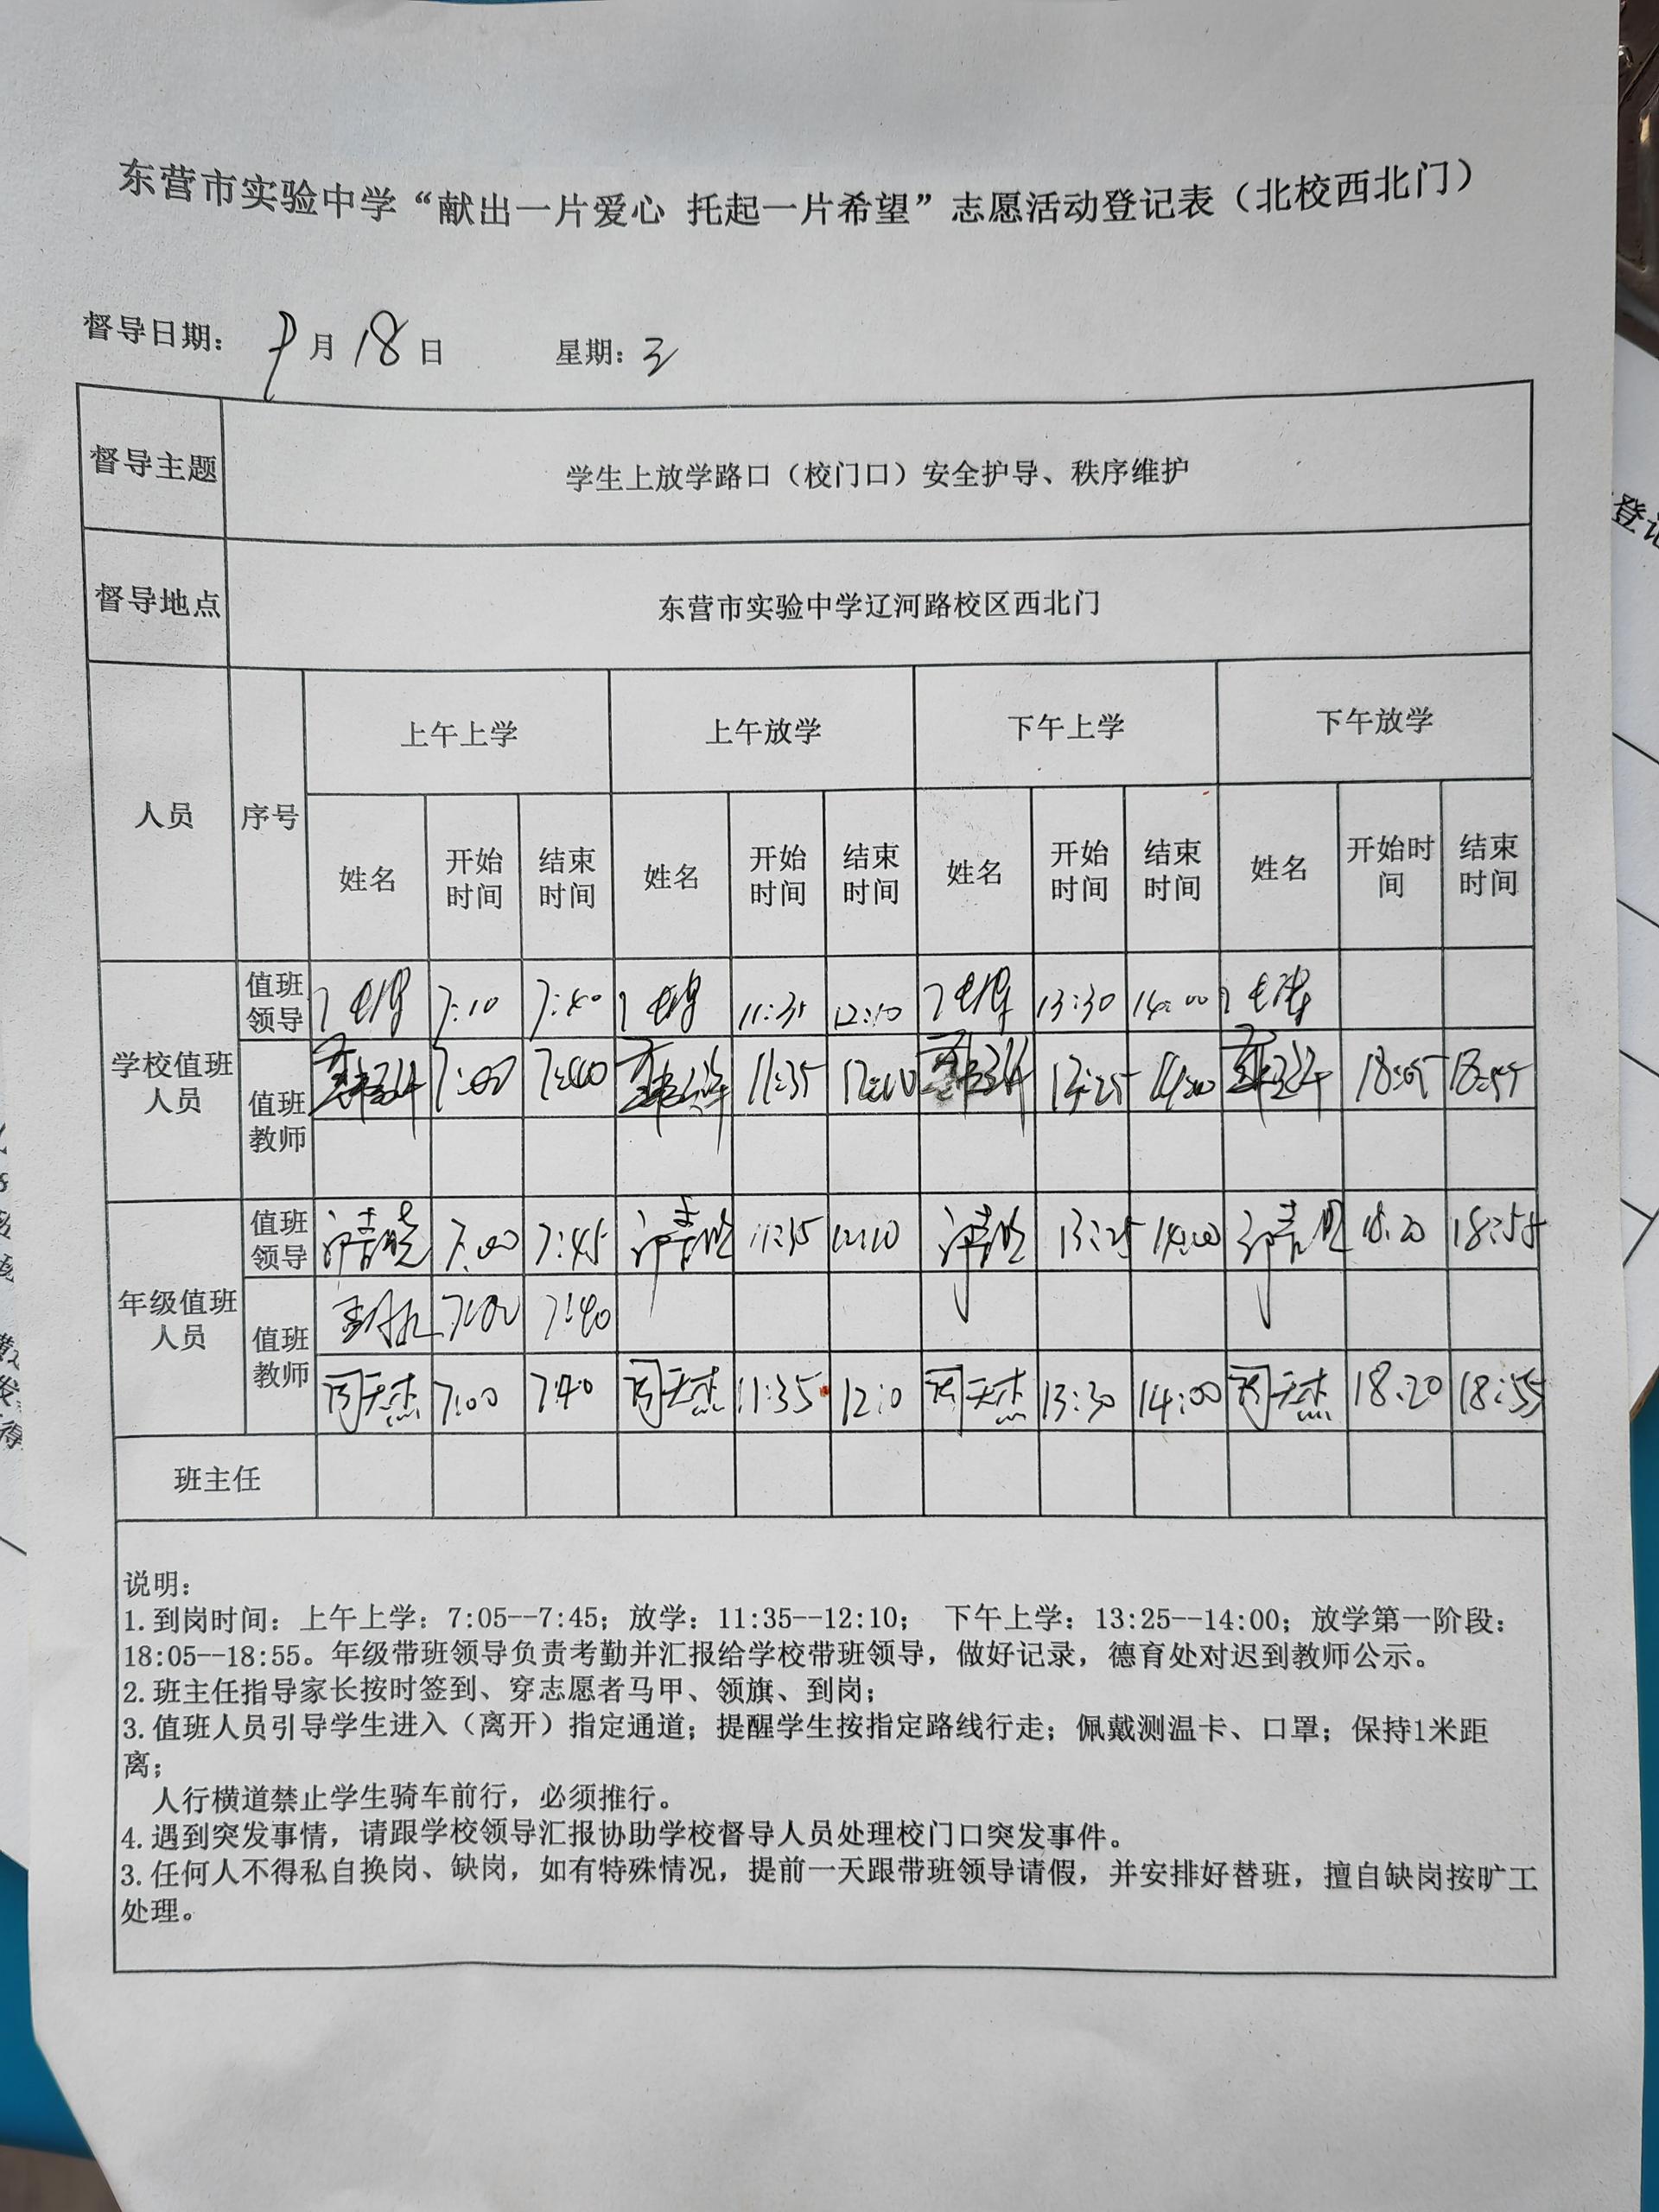 东营市实验中学“献出一片爱心 托起一片希望”志愿活动登记表（北校西北门）
督导日期： 9月18日 星期：三
督导主题 学生上放学路口（校门口）安全护导、秩序维护
督导地点 东营市实验中学辽河路校区西北门
人员 序号 上午上学 上午放学 下午上学 下午放学
姓名 开始时间 结束时间 姓名 开始时间 结束时间 姓名 开始时间 结束时间 姓名 开始时间 结束时间
学校值班人员
值班领导 7:10 7:40 11:35 12:10 13:30 14:00
值班教师 7:00 7:40 11:35 12:10 13:25 14:00 18:05 18:55
年级值班人员
值班领导 7:00 7:45 11:35 12:10 13:25 14:00 18:20 18:55
值班教师 7:00 7:40
周天杰 7:00 7:40 周天杰 11:35 12:10 周天杰 13:30 14:00 周天杰 18:20 18:55
班主任
说明：
1.到岗时间：上午上学：7:05--7:45；放学：11:35--12:10； 下午上学：13:25--14:00；放学第一阶段：
18:05--18:55。年级带班领导负责考勤并汇报给学校带班领导，做好记录，德育处对迟到教师公示。
2.班主任指导家长按时签到、穿志愿者马甲、领旗、到岗；
3.值班人员引导学生进入（离开）指定通道；提醒学生按指定路线行走；佩戴测温卡、口罩；保持1米距
离；
人行横道禁止学生骑车前行，必须推行。
4.遇到突发事情，请跟学校领导汇报协助学校督导人员处理校门口突发事件。
3.任何人不得私自换岗、缺岗，如有特殊情况，提前一天跟带班领导请假，并安排好替班，擅自缺岗按旷工
处理。
登记